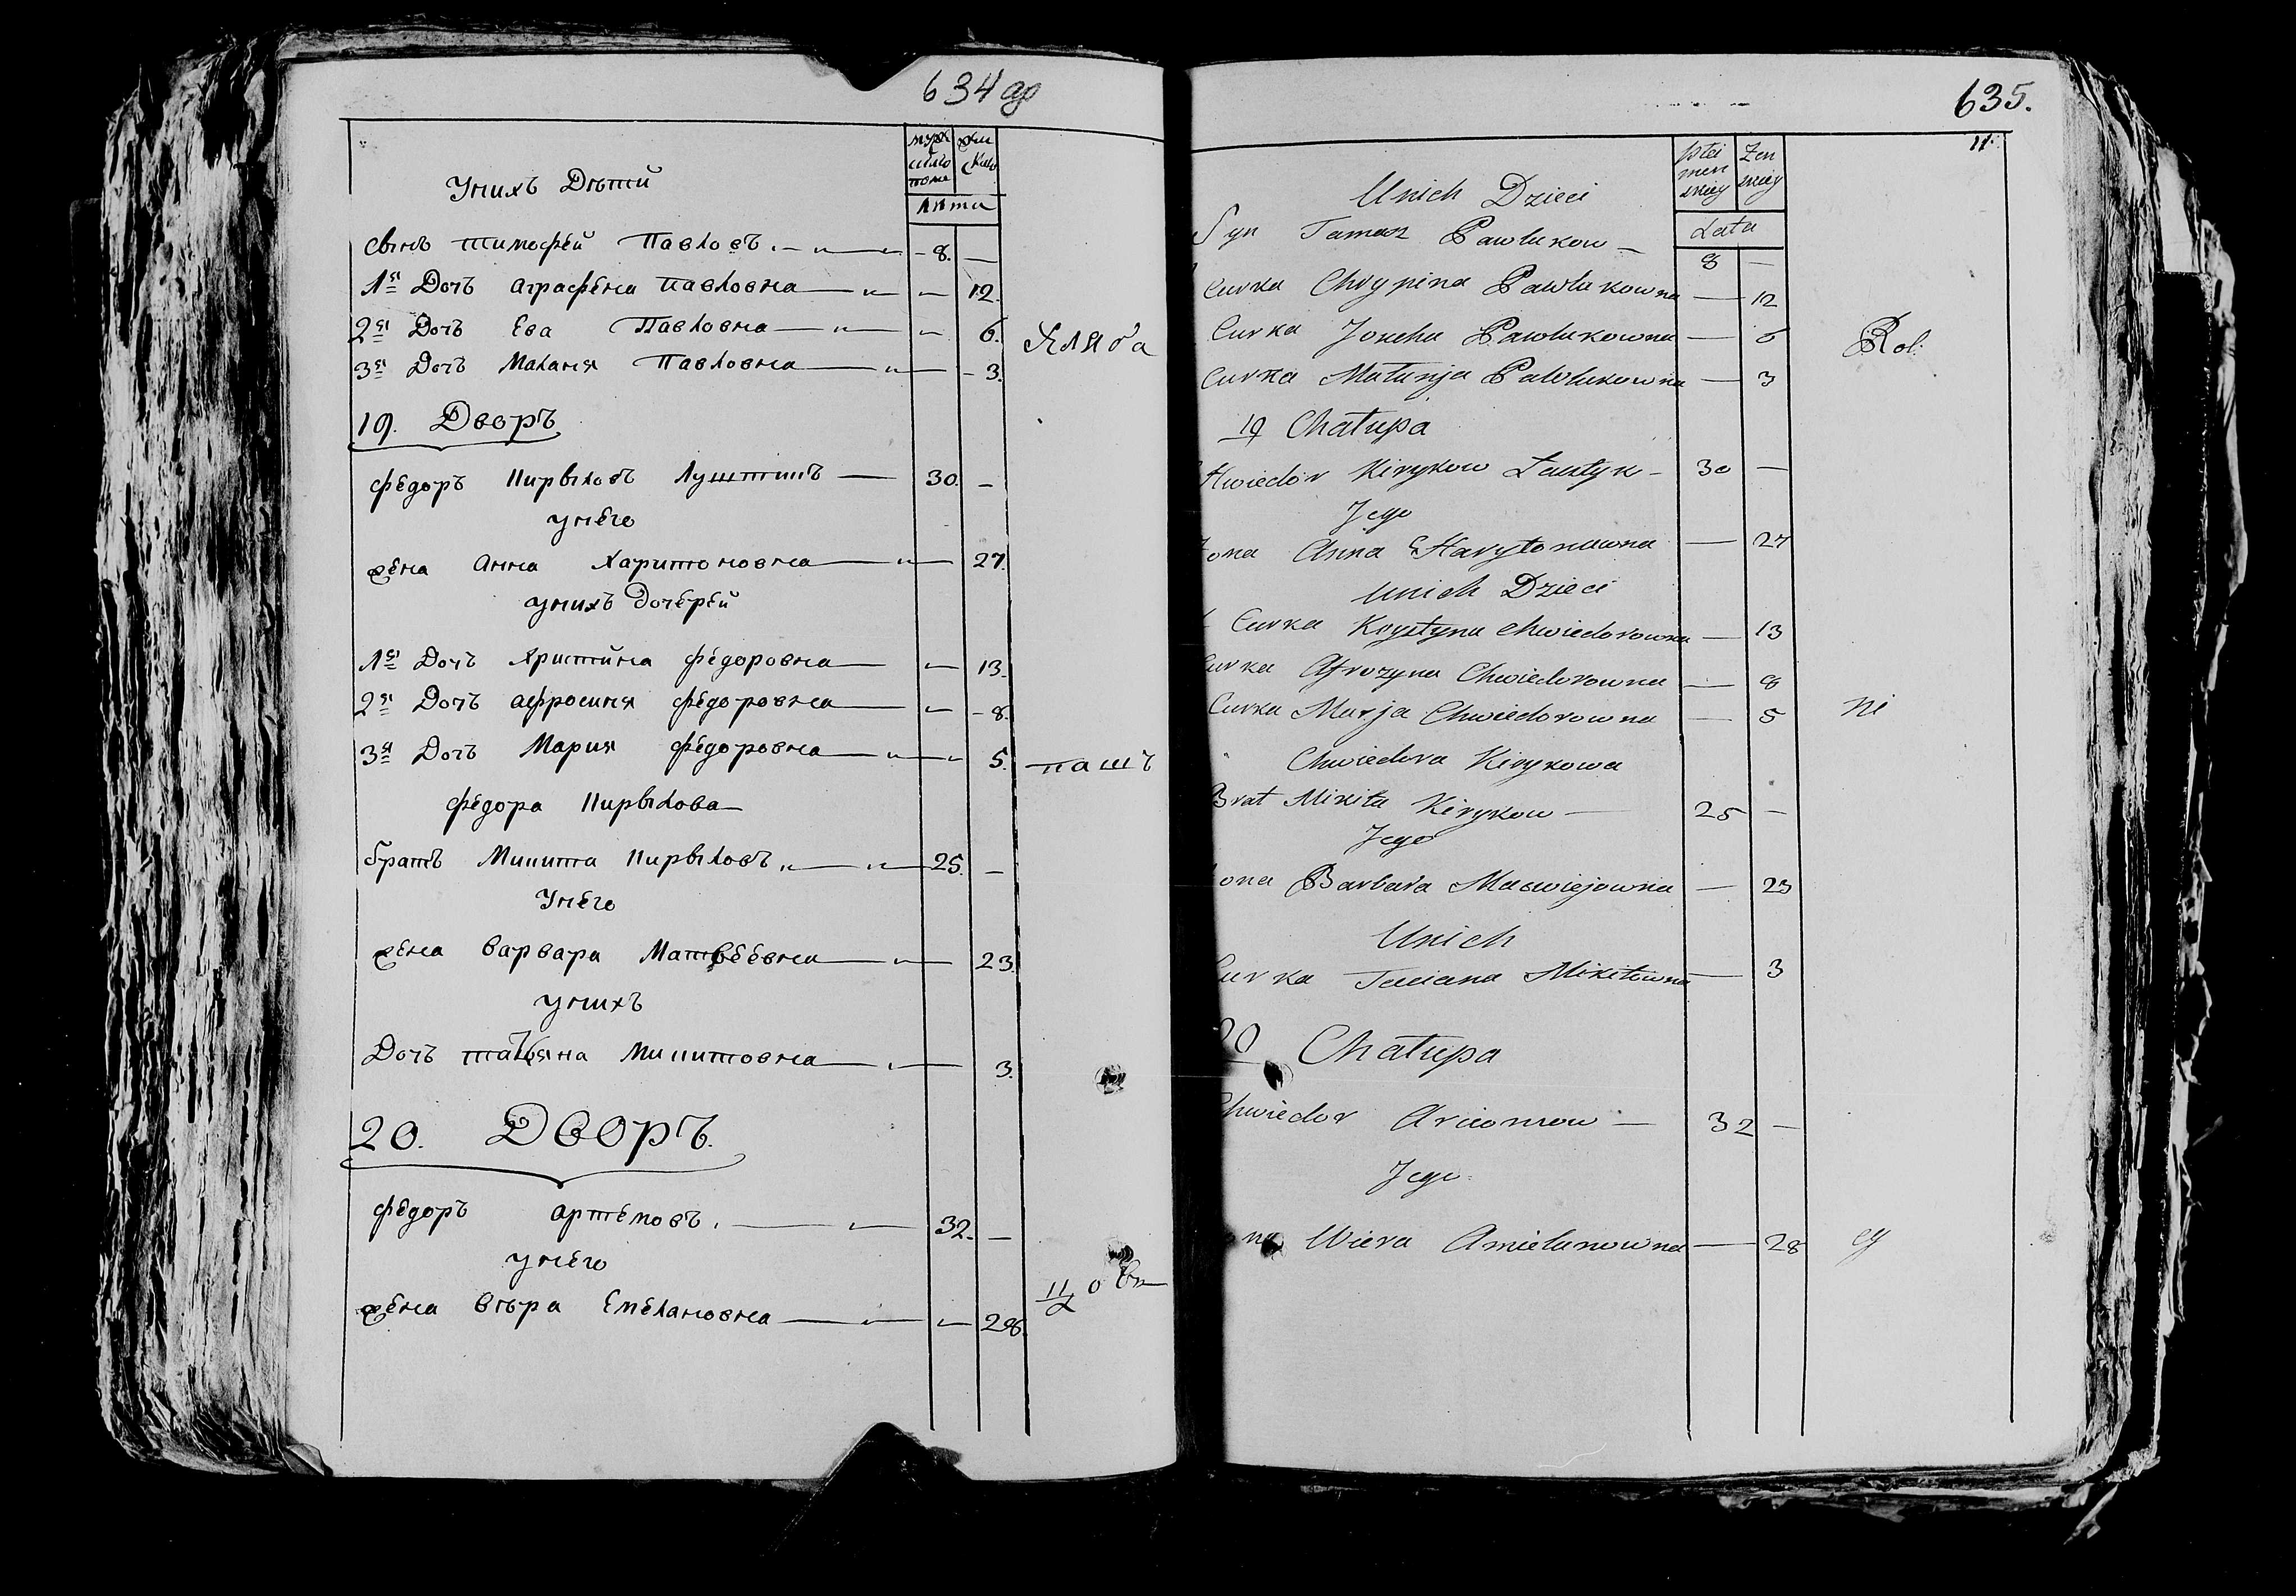 634 об
муж
ска
го
пола
жен
скаго
Лѣта
У нихъ Дѣтей
сынъ тимофей Павловъ — 8. —
1я Дочь аграфена павловна — — 12.
2я Дочь Ева Павловна — — 6.
3я Дочь Маланя Павловна — — 3.
Хлѣба
19. Дворъ
федоръ Кирыловъ Луштикъ — 30. —
у него
жена анна Харитоновна — 27.
у нихъ дочерей
1я Дочь Христина федоровна — — 13.
2я Дочь афросиня федоровна — — 8.
3я Дочь Мария федоровна — — 5.
пашъ
федора Кирылова
братъ Микита Кирыловъ — 25. —
У него
жена варвара Матвеевна — 23.
у нихъ
Дочь татьяна Микитовна — 3.
20. Дворъ.
федоръ артемовъ. — 32. —
у него
жена вѣра Емелановна — — 28.
635.
11.
płci
men
skiey
Zen
skiey
Lata
Unich Dzieci
Syn Tamasz Pawlukow — 8 —
Curka Chrypina Pawlukowna — 12
Curka Joucha Pawlukowna — 6
Curka Malanja Pawlukowna — 3
Rol:
19 Chatupa
Hwiedor Kirykow Lustyk — 30 —
Jego
Zona Anna Harytonowna — 27
Unich Dzieci
Curka Krystyna Chwiedorowna — 13
Curka Afrozyna Chwiedorowna — 8
Curka Marja Chwiedorowna — 5
ni
Chwiedora Kirykowa
Brat Mikita Kirykow — 25 —
Jego
Zona Barbara Maciejowna — 23
Unich
Curka Taciana Mikitowna — 3
20 Chatupa
Chwiedor Arciomow — 32 —
Jego
Zona Wiera Amielanowna — 28
cy